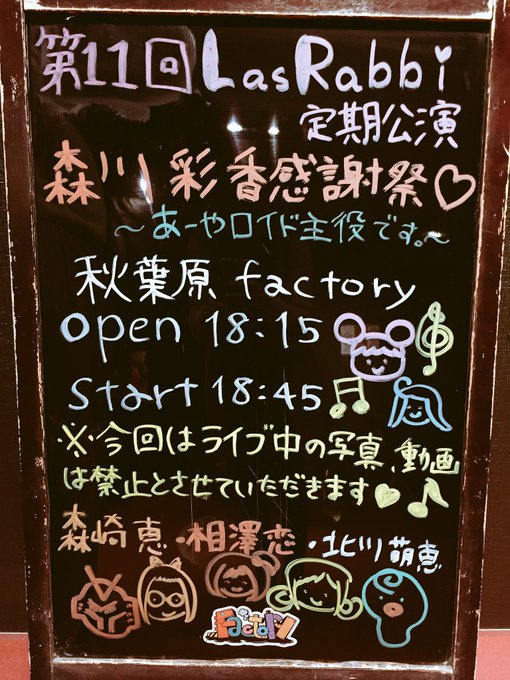 第11回 LasRabbi
定期公演
森川彩香感謝祭♡
～あーやロイド主役です。～
秋葉原 factory
open 18:15
start 18:45
※今回はライブ中の写真、動画
は禁止とさせていただきます♥
森崎恵・相澤恋・北川萌恵
Factory